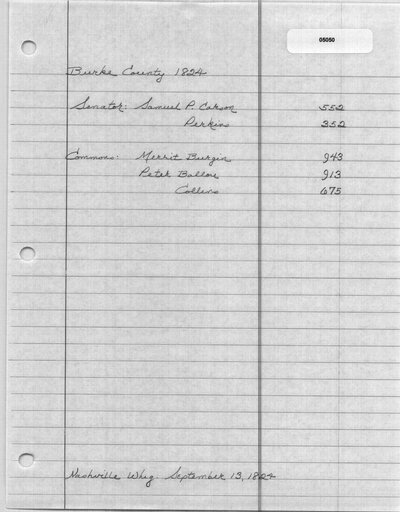 05050
Burke County 1824
Senator: Samuel P. Carson 552
Perkins 352
Commons: Merrit Burgin 943
Peter Ballou 913
Collens 675
Nashville Whig. September 13, 1824